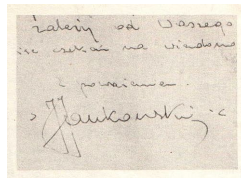 zależy od Waszego
czekać na wiadomo
z poważaniem
Jankowski